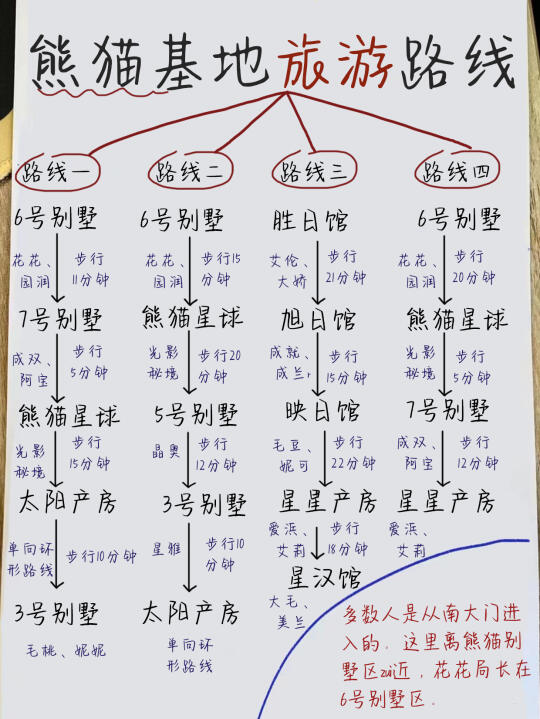 熊猫基地旅游路线
路线一
6号别墅
花花、
园润
步行
11分钟
7号别墅
成双、
阿宝
步行
5分钟
熊猫星球
光影
秘境
步行
15分钟
太阳产房
单向环
形路线
步行10分钟
3号别墅
毛桃、妮妮
路线二
6号别墅
花花、
园润
步行15
分钟
熊猫星球
光影
秘境
步行20
分钟
5号别墅
晶奥
步行
12分钟
3号别墅
星雅
步行10
分钟
太阳产房
单向环
形路线
路线三
胜日馆
艾伦、
大娇
步行
21分钟
旭日馆
成就、
成兰、
步行
15分钟
映日馆
毛豆、
妮可
步行
22分钟
星星产房
爱浜、
艾莉
步行
18分钟
星汉馆
大毛、
美兰
路线四
6号别墅
花花、
园润
步行
20分钟
熊猫星球
光影
秘境
步行
5分钟
7号别墅
成双、
阿宝
步行
12分钟
星星产房
爱浜、
艾莉
多数人是从南大门进
入的．这里离熊猫别
墅区zui近，花花局长在
6号别墅区．